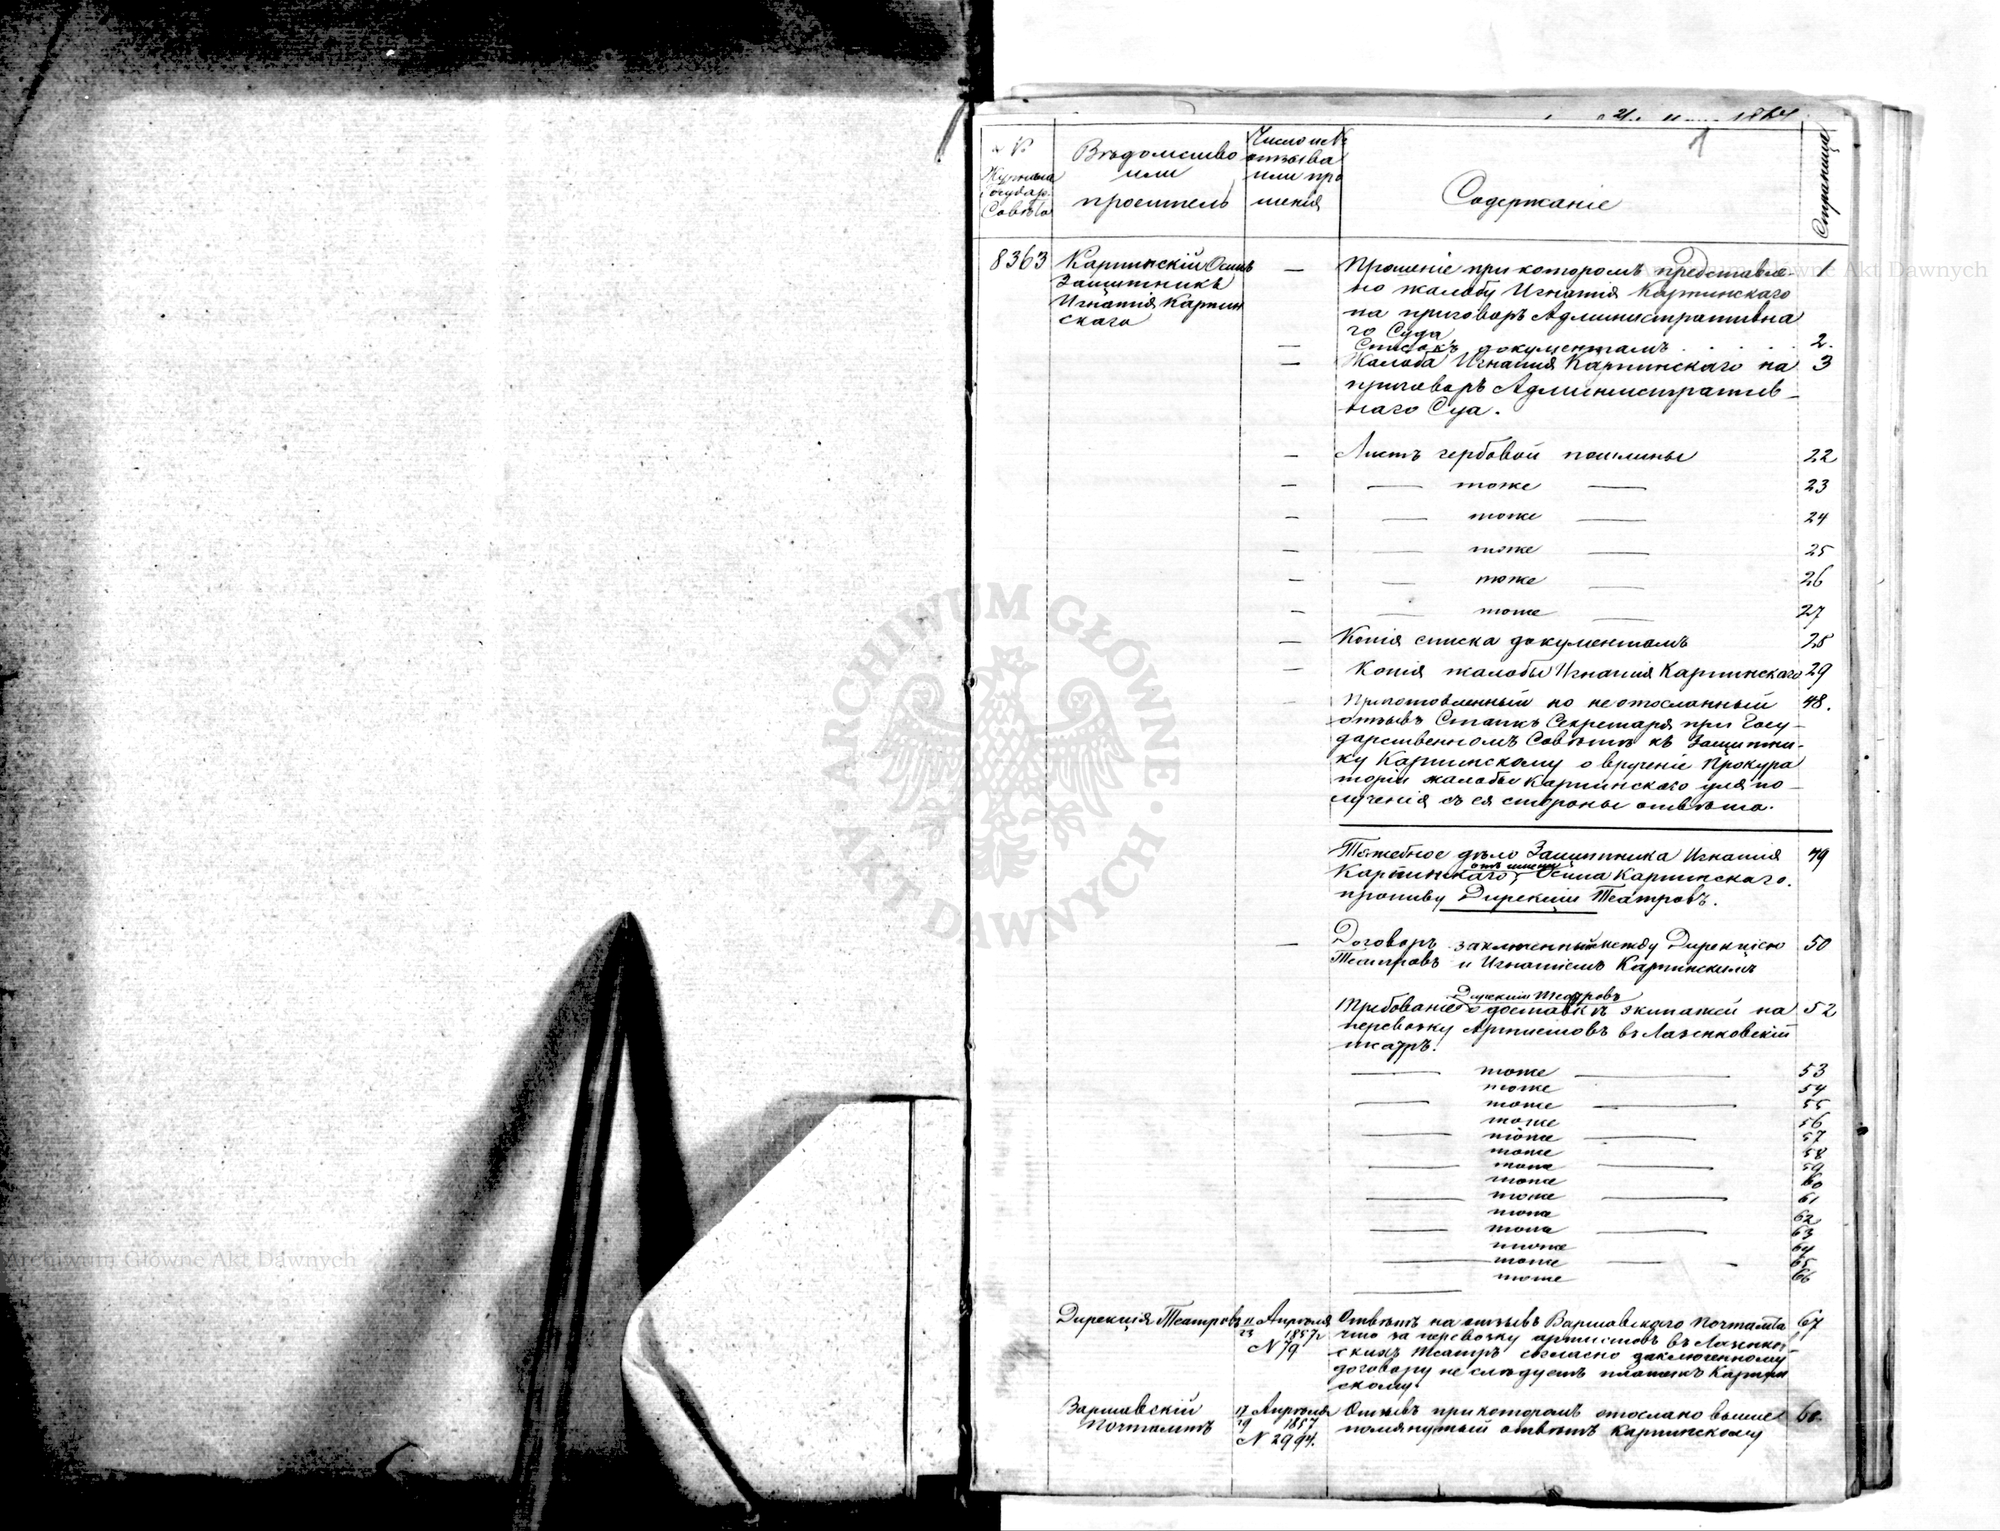 1864
1
№
Журнала
Государ.
Совѣта
Вѣдомство
или
проситель
Число и №
отзыва
или про
шенія
Содержаніе
Страница
8363
Карпинскій Осипъ
Защитникъ
Игнатія Карпин
скаго
— Прошеніе при которомъ представле- 1
но жалобу Игнатія Карпинскаго
на приговоръ Административна
го Суда
— Списокъ документамъ . . . . 2.
— Жалоба Игнатія Карпинскаго на 3
приговоръ Административ-
наго Суа.
— Листъ гербовой пошлины 22
— — тоже — 23
— — тоже — 24
— — тоже — 25
— — тоже — 26
— — тоже — 27
— Копія списка документамъ 28
— Копія жалобы Игнатія Карпинскаго 29
— Приготовленный но не отосланный 48.
отзывъ Статсъ Секретаря при Госу-
дарственномъ Совѣтѣ къ Защитни-
ку Карпинскому о врученіе Прокура
торіи жалобы Карпинскаго для по-
лученія съ ея стороны отвѣта.
Тяжебное дѣло Защитника Игнатія 49
отъ имени
Карпинскаго, Осипа Карпинскаго.
противу Дирекціи Театровъ.
— Договоръ заключенный между Дирекціею 50
Театровъ и Игнатіемъ Карпинскимъ
Дирекціи Театровъ
Требованіе о доставкѣ экипажей на 52
перевозку Артистовъ въ Лазенковскій
театръ.
— тоже — 53
тоже 54
— тоже — 55
тоже 56
— тоже — 57
тоже 58
— тоже — 59
тоже 60
— тоже — 61
тоже 62
— тоже — 63
тоже 64
— тоже — 65
тоже 66
Дирекція Театровъ 11/23 Апрѣля 1857 г № 79
Отвѣтъ на отзывъ Варшавскаго Почтамта 67
что за перевозку артистовъ въ Лазенков-
скихъ театръ согласно заключенному
договору не слѣдуетъ платежъ Карпин
скому.
Варшавскій
Почтамтъ
17/29 Апрѣля
1857
№ 2994.
Отзывъ при которомъ отослано выше
помянутый отвѣтъ Карпинскому
Archiwum Główne Akt Dawnych
Archiwum Główne Akt Dawnych
ARCHIWUM GŁÓWNE AKT DAWNYCH